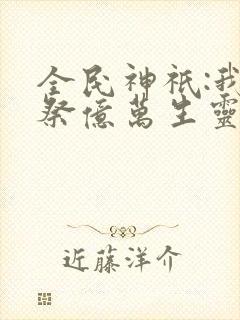 全民神祇:我
祭億萬生靈
近藤洋介